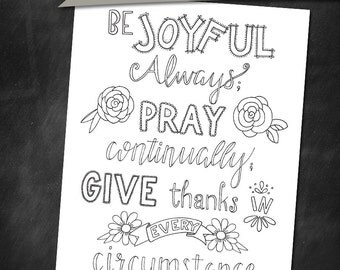 BE JOYFUL
Always;
PRAY
continually;
GIVE thanks IN
EVERY
circumstance